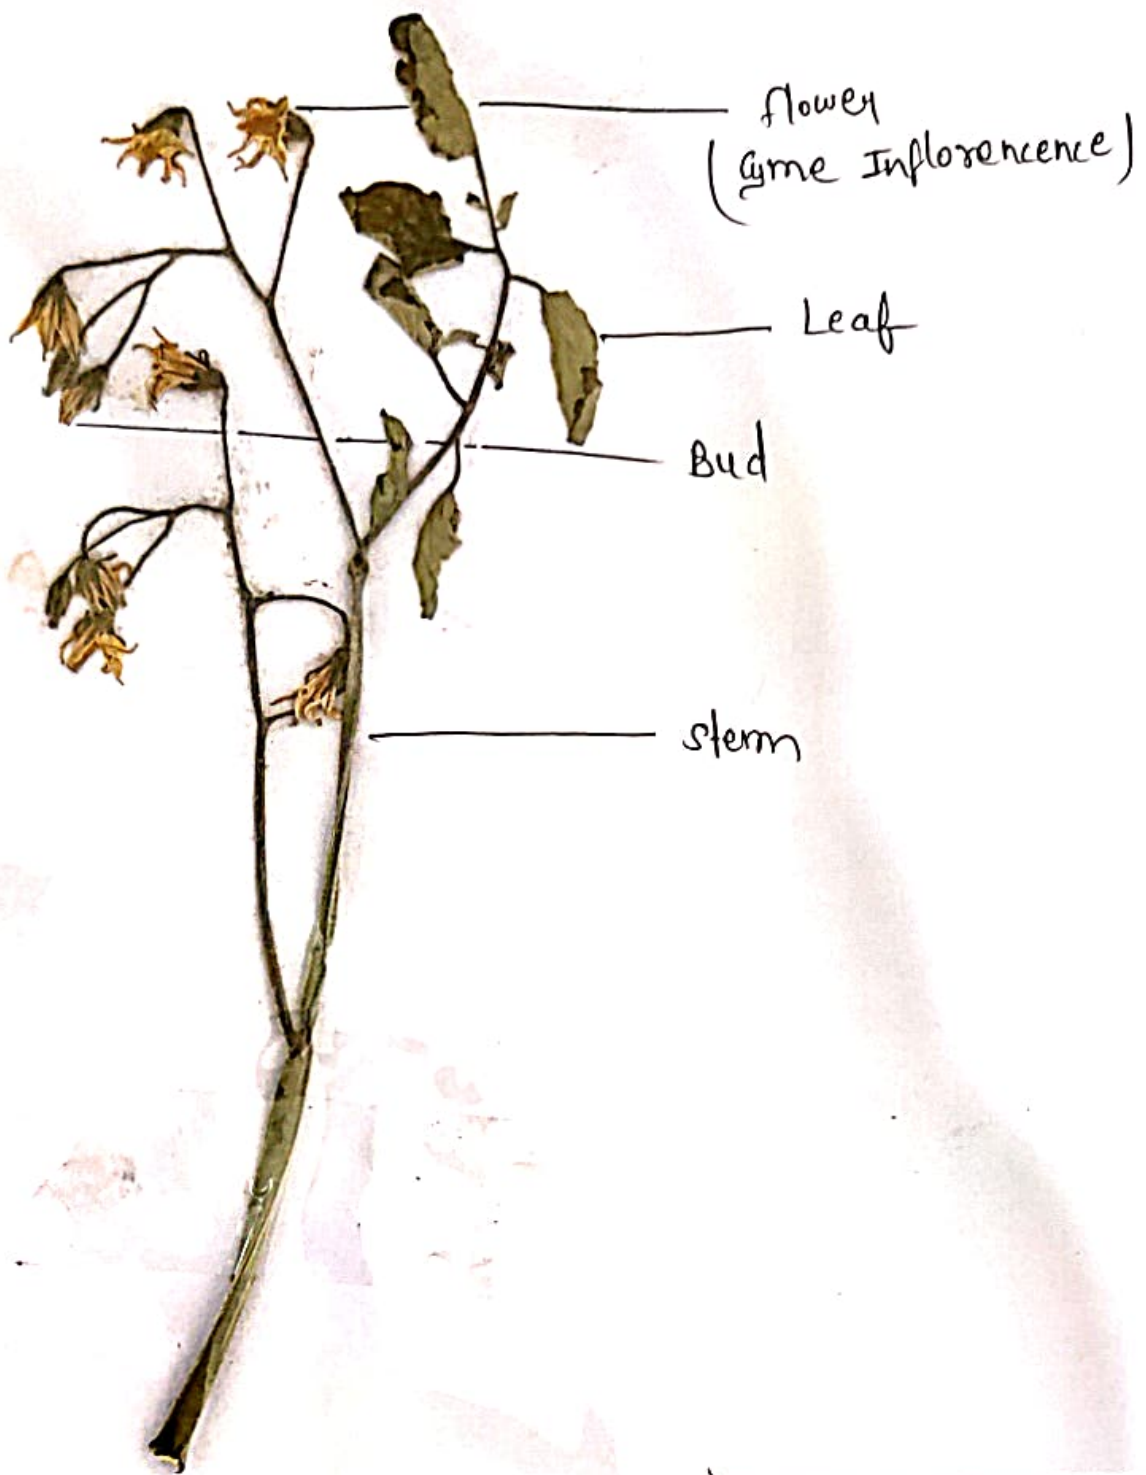 flower
(Cyme Inflorencence)
Leaf
Bud
sterm